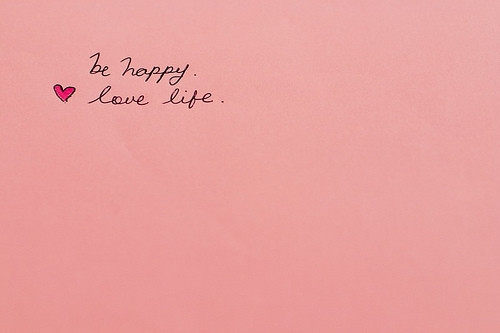 be happy.
love life.